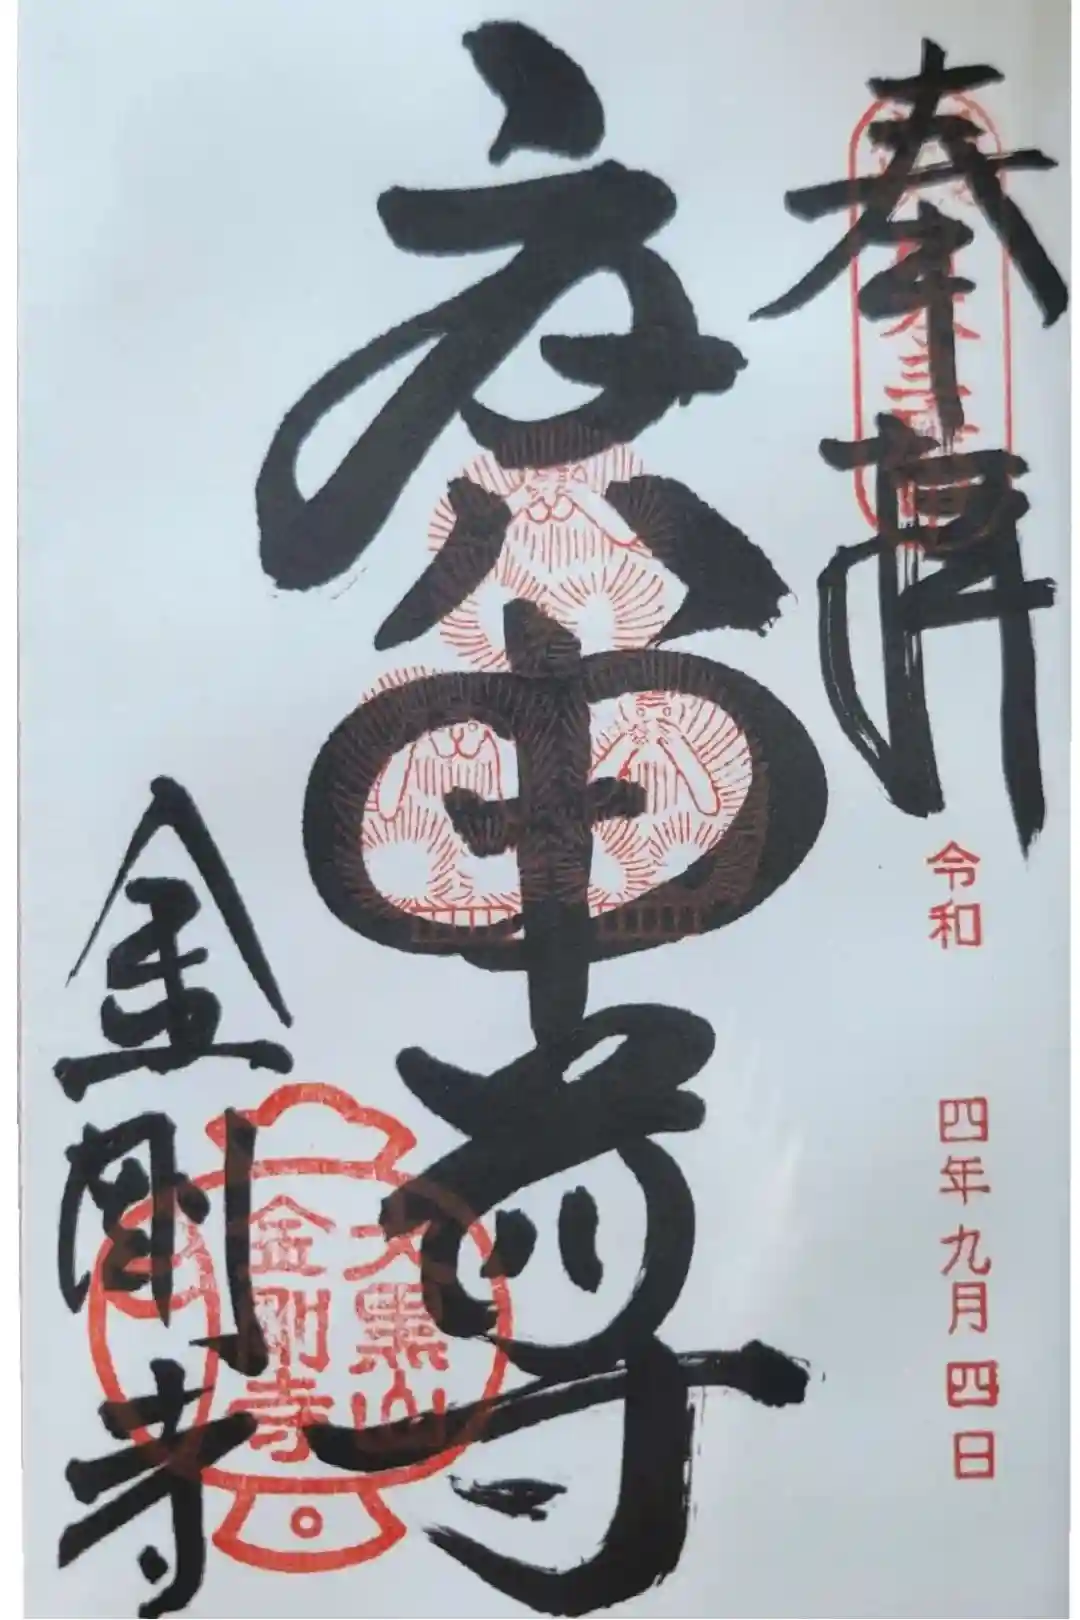 奉拝
令和 四年九月四日
庚申尊
金剛寺
大黒山
金剛寺